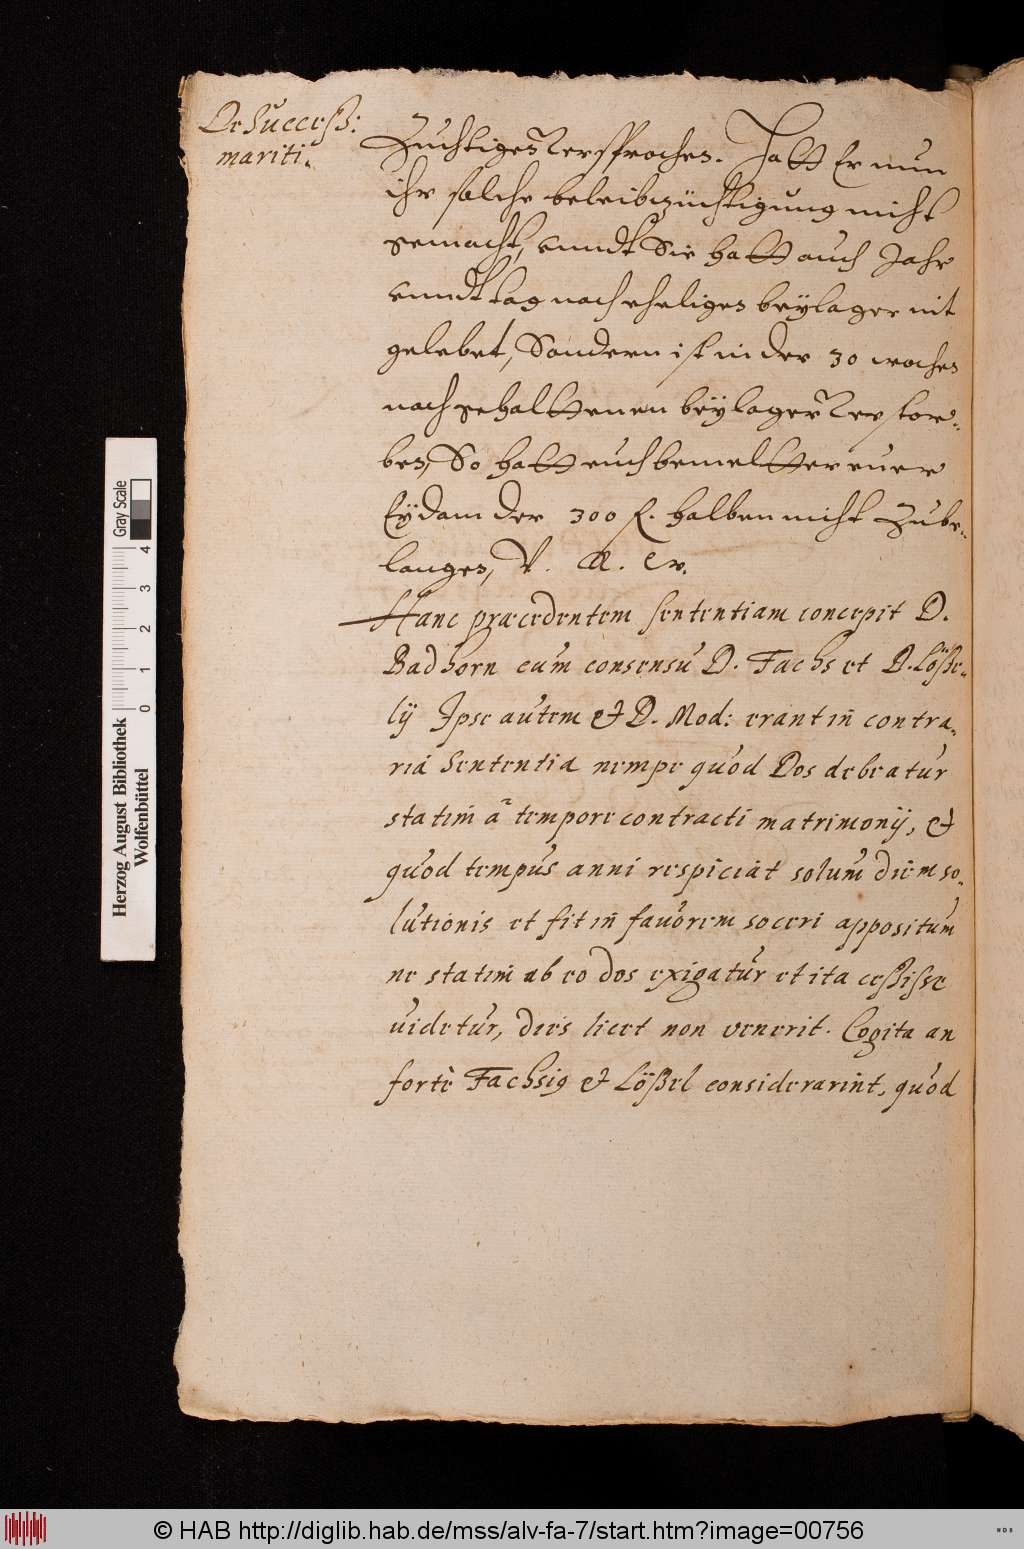 De Success:
mariti.
Zuchtigen versprochen. Hatt Er nun
ihr solche beleibzüchtigung nicht
gemacht, unndt Sie hatt auch Jahr
unndt tag nach ehelichen beylager nit
gelebet, Sondern ist in der 30 wochen
nach gehalttenen beylager verstor-
ben, So hatt euch bemeltter euer
Eydam der 300 f. halben nicht Zube-
langen, V. R. W.
Hanc præcedentem sententiam concepit D.
Badhorn cum consensu D. Fachs et D. Löße-
lij Ipse autem & D. Mod: erant in contra-
ria Sententia nempe quod Dos debeatur
statim à tempore contracti matrimonij, &
quod tempus anni respiciat solum diem so-
lutionis et sit in favorem soceri appositum
ne statim ab eo dos exigatur et ita cessisse
uidetur, dies licet non venerit. Cogita an
fortè Fachsig & Lößel considerarint, quod
Herzog August Bibliothek
Wolfenbüttel
0 1 2 3 4
Gray Scale
© HAB http://diglib.hab.de/mss/alv-fa-7/start.htm?image=00756